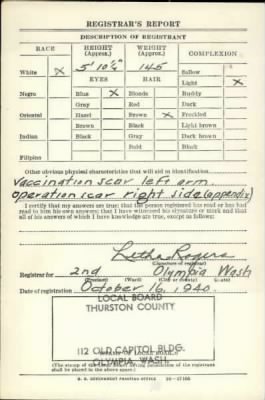 REGISTRAR'S REPORT
DESCRIPTION OF REGISTRANT
RACE HEIGHT (Approx.) WEIGHT (Approx.) COMPLEXION
5' 10½" 145 Sallow
White X EYES HAIR Light X
Negro Blue X Blonde Ruddy
Gray Red Dark
Oriental Hazel Brown X Freckled
Brown Black Light brown
Indian Black Gray Dark brown
Bald Black
Filipino
Other obvious physical characteristics that will aid in identification
Vaccination scar left arm.
operation scar right side (appendix)
I certify that my answers are true; that the person registered has read or has had
read to him his own answers; that I have witnessed his signature or mark and that
all of his answers of which I have knowledge are true, except as follows:
Letha Rogers
(Signature of registrar)
Registrar for 2nd Olympia Wash
(Precinct) (Ward) (City or County) (State)
Date of registration October 16, 1940.
LOCAL BOARD
THURSTON COUNTY
112 OLD CAPITOL BLDG.
OLYMPIA, WASH.
(The stamp of the Local Board having jurisdiction of the registrant
shall be placed in the above space.)
U. S. GOVERNMENT PRINTING OFFICE 16-17105